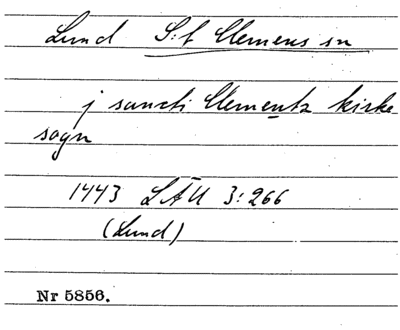 Lund S:t Clemens sn
j sancti Clementz kirke
sogn
1443 LÄU 3:266
(Lund)
Nr 5856.